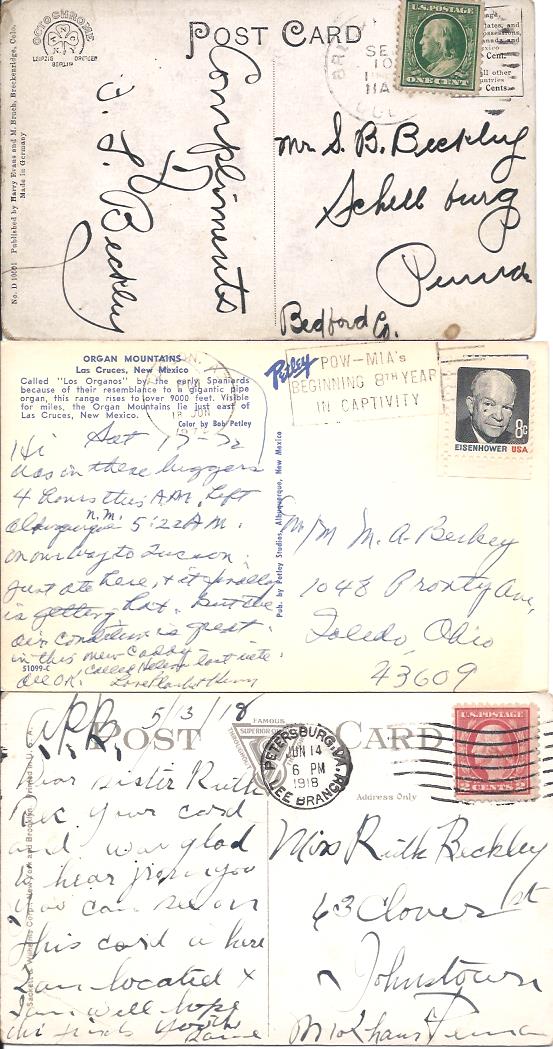 OCTOCHROME
LEIPZIG DRESDEN
BERLIN
POST CARD
U.S. POSTAGE
ONE CENT
SE
10
Cent.
all other
Cents.
No. D 10091 Published by Harry Evans and M. Bruch, Breckenridge, Colo.
Made in Germany
Compliments
Beckley
Mr S. B. Beckley
Schellburg
Penna
Bedford Co.
ORGAN MOUNTAINS
Las Cruces, New Mexico
Called "Los Organos" by the early Spaniards
because of their resemblance to a gigantic pipe
organ, this range rises to over 9000 feet. Visible
for miles, the Organ Mountains lie just east of
Las Cruces, New Mexico.
Color by Bob Petley
Petley
POW-MIA's
BEGINNING 8TH YEAR
IN CAPTIVITY
8c
EISENHOWER USA
18 JUN
Pub. by Petley Studios, Albuquerque, New Mexico
Hi Sat 17-72
Was in these buggers
4 hours this A.M. Left
Albuquerque N.M. 5:22 A.M.
on our way to Tucson.
Just ate here, & it finally
is getting hot. But the
air condition is great
in this new Caddy
Called Helen last nite.
All OK. Love
51099-C
Mr/M M. A. Beckey
1048 Pronty Ave,
Toledo, Ohio
43609
5/3/18
POST CARD
FAMOUS
SUPERIOR
THROUGHOUT
PETERSBURG, VA.
JUN 14
6 PM
1918
LEE BRANCH
U.S. POSTAGE
2 CENTS 2
Address Only
Dear Sister Ruth
Rec your card
and was glad
to hear from you
you can see on
this card where
I am located &
I am well hope
this finds you the
same
Miss Ruth Beckley
63 Clover st
Johnstown
Penna